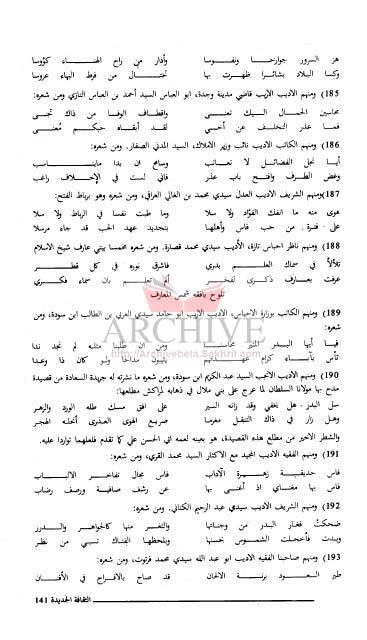 هز السرور جوارحا ونفوسا وأدار من راح الهناء كؤوسا
وكسا البلاد بشائرا ظهرت بها تختال من فرط البهاء عروسا
185) ومنهم الاديب الاريب قاضي مدينة وجدة، ابو العباس السيد أحمد بن العباس التازي، ومن شعره:
محاسن الجمال اليك تعنى واقطاف الوفا من ذاك تجنى
فما عذر التخلف عن أخي لقد أبقاه حبكم معنى
186) ومنهم الكاتب الاديب نائب وزير الاملاك، السيد المدني الصفار. ومن شعره:
أيا نجل الفضائل لا تعاتب وسامح ان بدا ما يناسب
وغض الطرف وافتح باب عذر فاني لست في الاخلاف راغب
187) ومنهم الشريف الاديب العدل سيدي محمد بن الغالي العراقي، ومن شعره وهو برباط الفتح:
هوى منه ما انفك الفؤاد ولا سلا وما طبت نفسا في الرباط ولا سلا
على فترة من حب فاس وأهلها بتجديد عهد الحب قد جاء مرسلا
188) ومنهم ناظر احباس تازة، الأديب سيدي محمد قصارة. ومن شعره مخمسا بيتي عارف شيخ الاسلام
تلألأ في سماك العلم بدري فاشرق نوره في كل قطر
عرفت بعارف ذكرى لفخر ألم تعلم بان سماء فكري
تلوح بافقه شمس المعارف
189) ومنهم الكاتب بوزارة الاحباس، الاديب الاريب أبو حامد سيدي العربي بن الطالب ابن سودة، ومن
شعره:
فيا أيها البدر المنير محاسنا ومن ان طلبنا مثله لم نجد ندا
تأس بآباء كرام عهدتهم يلبون مداحا ولو كان ذا وعدا
190) ومنهم الاديب الانجب السيد عبد الكريم ابن سودة، ومن شعره ما نشرته له جريدة السعادة من قصيدة
مدح بها مولانا السلطان لما عرج على بني ملال في ذهابه لمراكش مطلعها:
سلي البدر هل يخفي وقد زانه السير على افق مسك طله الورد والزهر
وهل زار في ذاك التنقل مغرما صريع الهوى العذري أنحله الهجر
والشطر الاخير من مطلع هذه القصيدة، هو بعينه لعمه ابي الحسن علي كما تقدم فلعلهما تواردا عليه.
191) ومنهم الفقيه الاديب المجيد مع الاكثار السيد محمد القري، ومن شعره:
فاس حديقة زهرة الآداب فاس مجال تفاخر الالباب
فاس بها مغناي اذ أغنى بها عن رشف صافية ورصف رضاب
192) ومنهم الشريف الاديب سيدي عبد الرحيم الكتاني. ومن شعره:
ضحكت فغار البدر من وجناتها والثغر منها كالجواهر والدرر
وبدت فأخجلت الشموس بحسنها وبلحظها الفتاك تسبي من نظر
193) ومنهم صاحبنا الفقيه الاديب ابو عبد الله سيدي محمد قرتوت، ومن شعره:
طير السعود برنة الالحان قد صاح بالافراح في الأفنان
الثقافة الجديدة 141
ARCHIVE
http://Archivebeta.Sakhrit.com